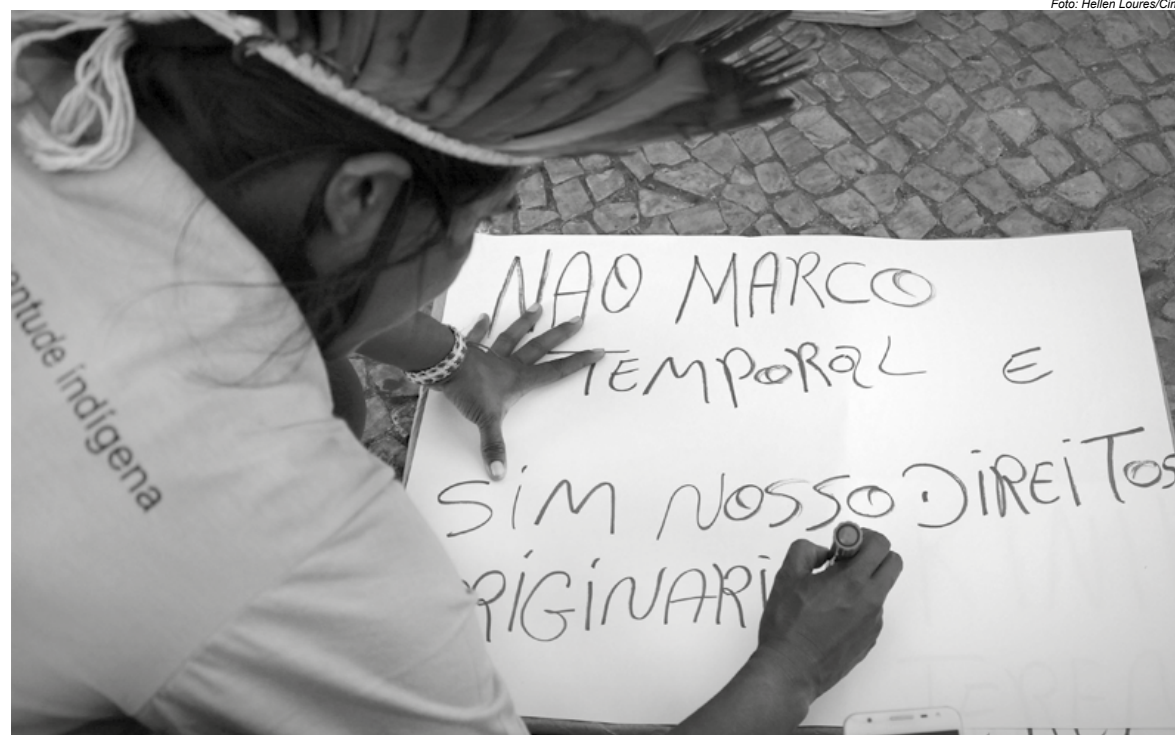 Foto: Hellen Loures/Cim
entude indígena
NAO MARCO
TEMPORAL E
SIM NOSSO DIREITOS
RIGINARI